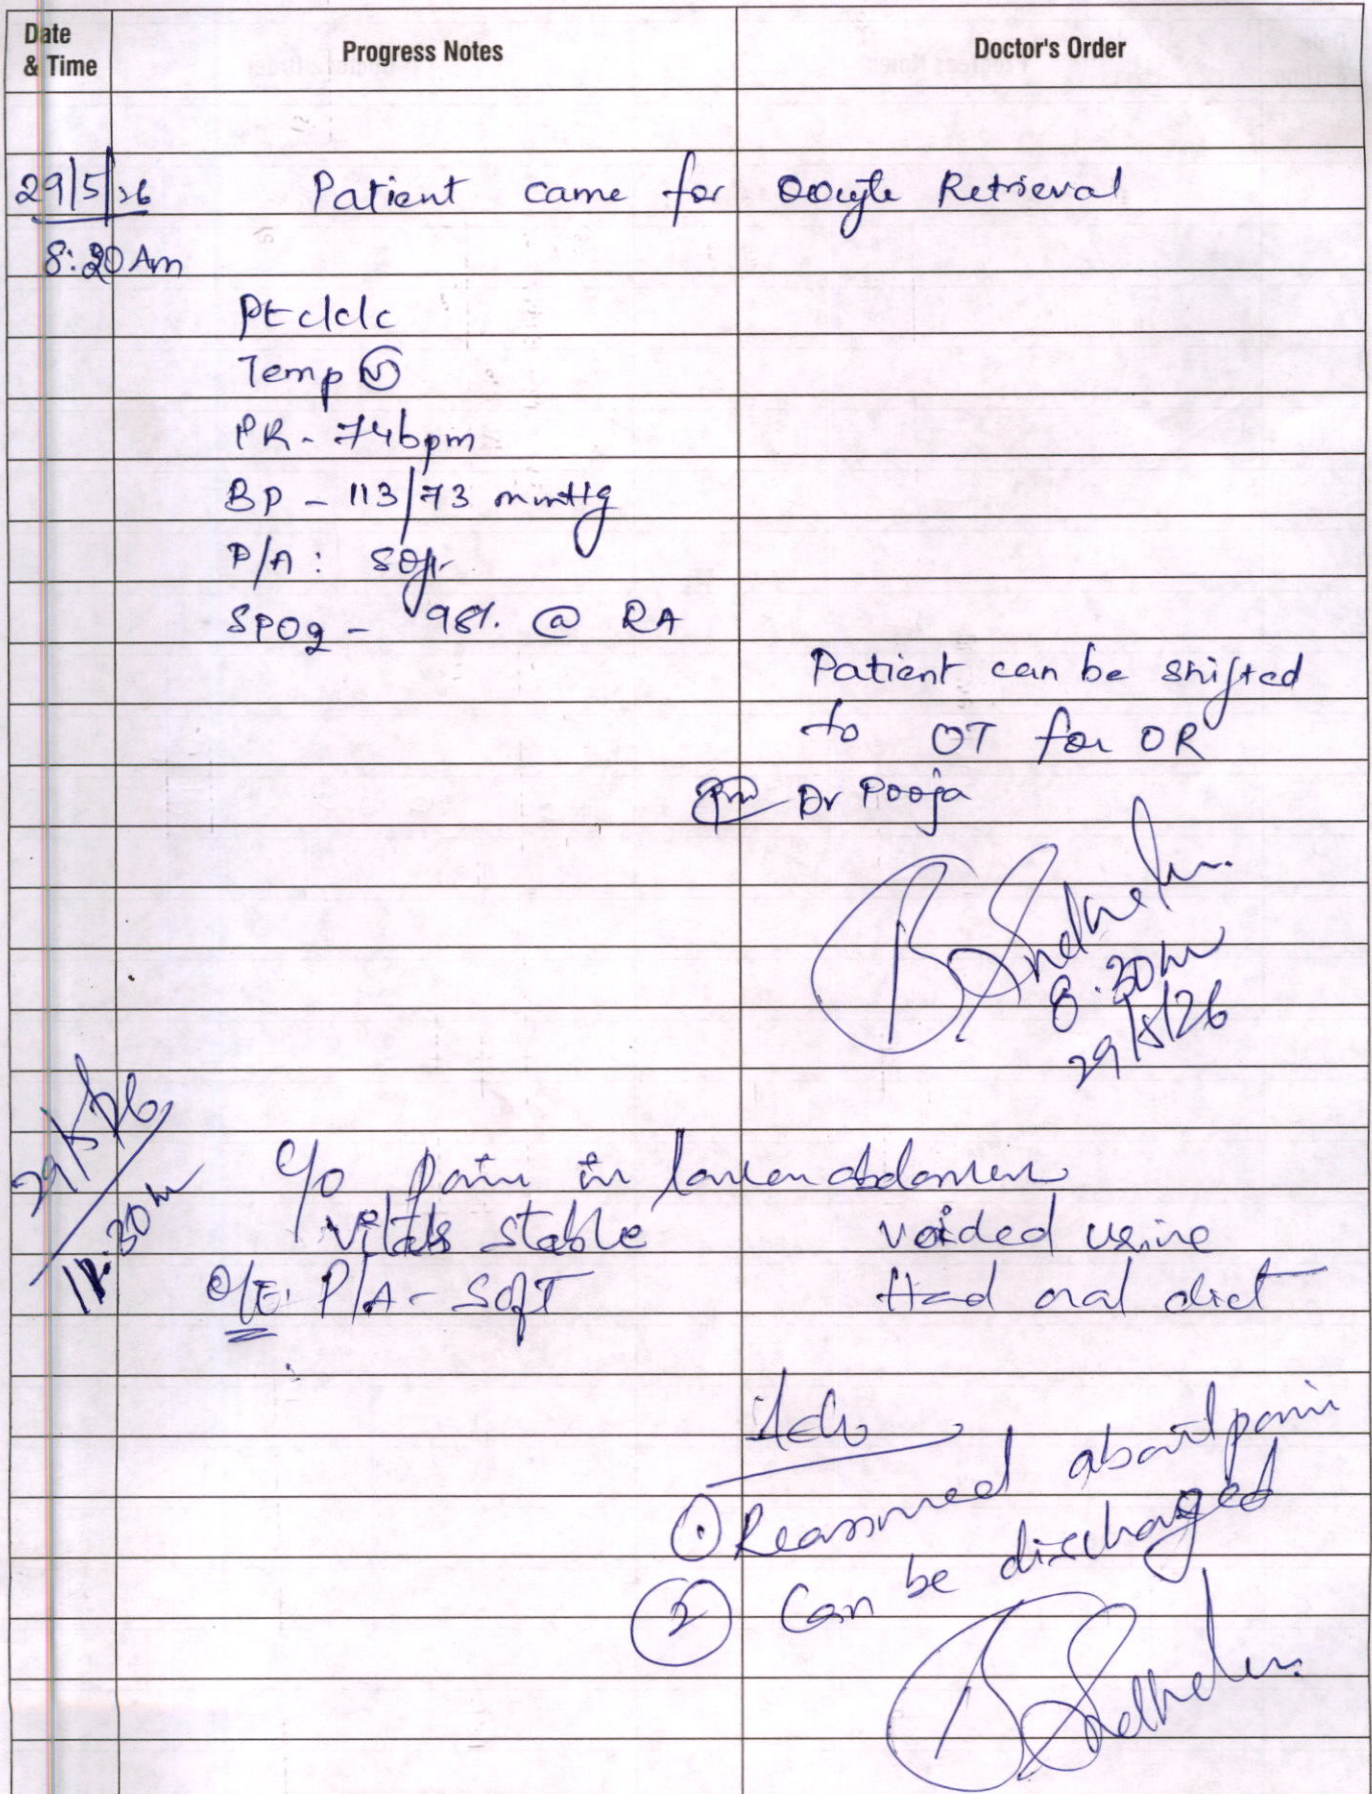 Date & Time
Progress Notes
Doctor's Order
29/5/26
Patient came for Oocyte Retrieval
8:20 Am
Pt c/c/c
Temp (N)
PR - 74bpm
BP - 113/73 mmHg
P/A : soft
SPO2 - 98% @ RA
Patient can be shifted
to OT for OR
Dr Pooja
8.30
29/5/26
29/5/26
c/o Pain in lower abdomen
11.30
Vitals stable
voided urine
O/E: P/A - Soft
Had oral diet
Adv
① Reassured about pain
② Can be discharged